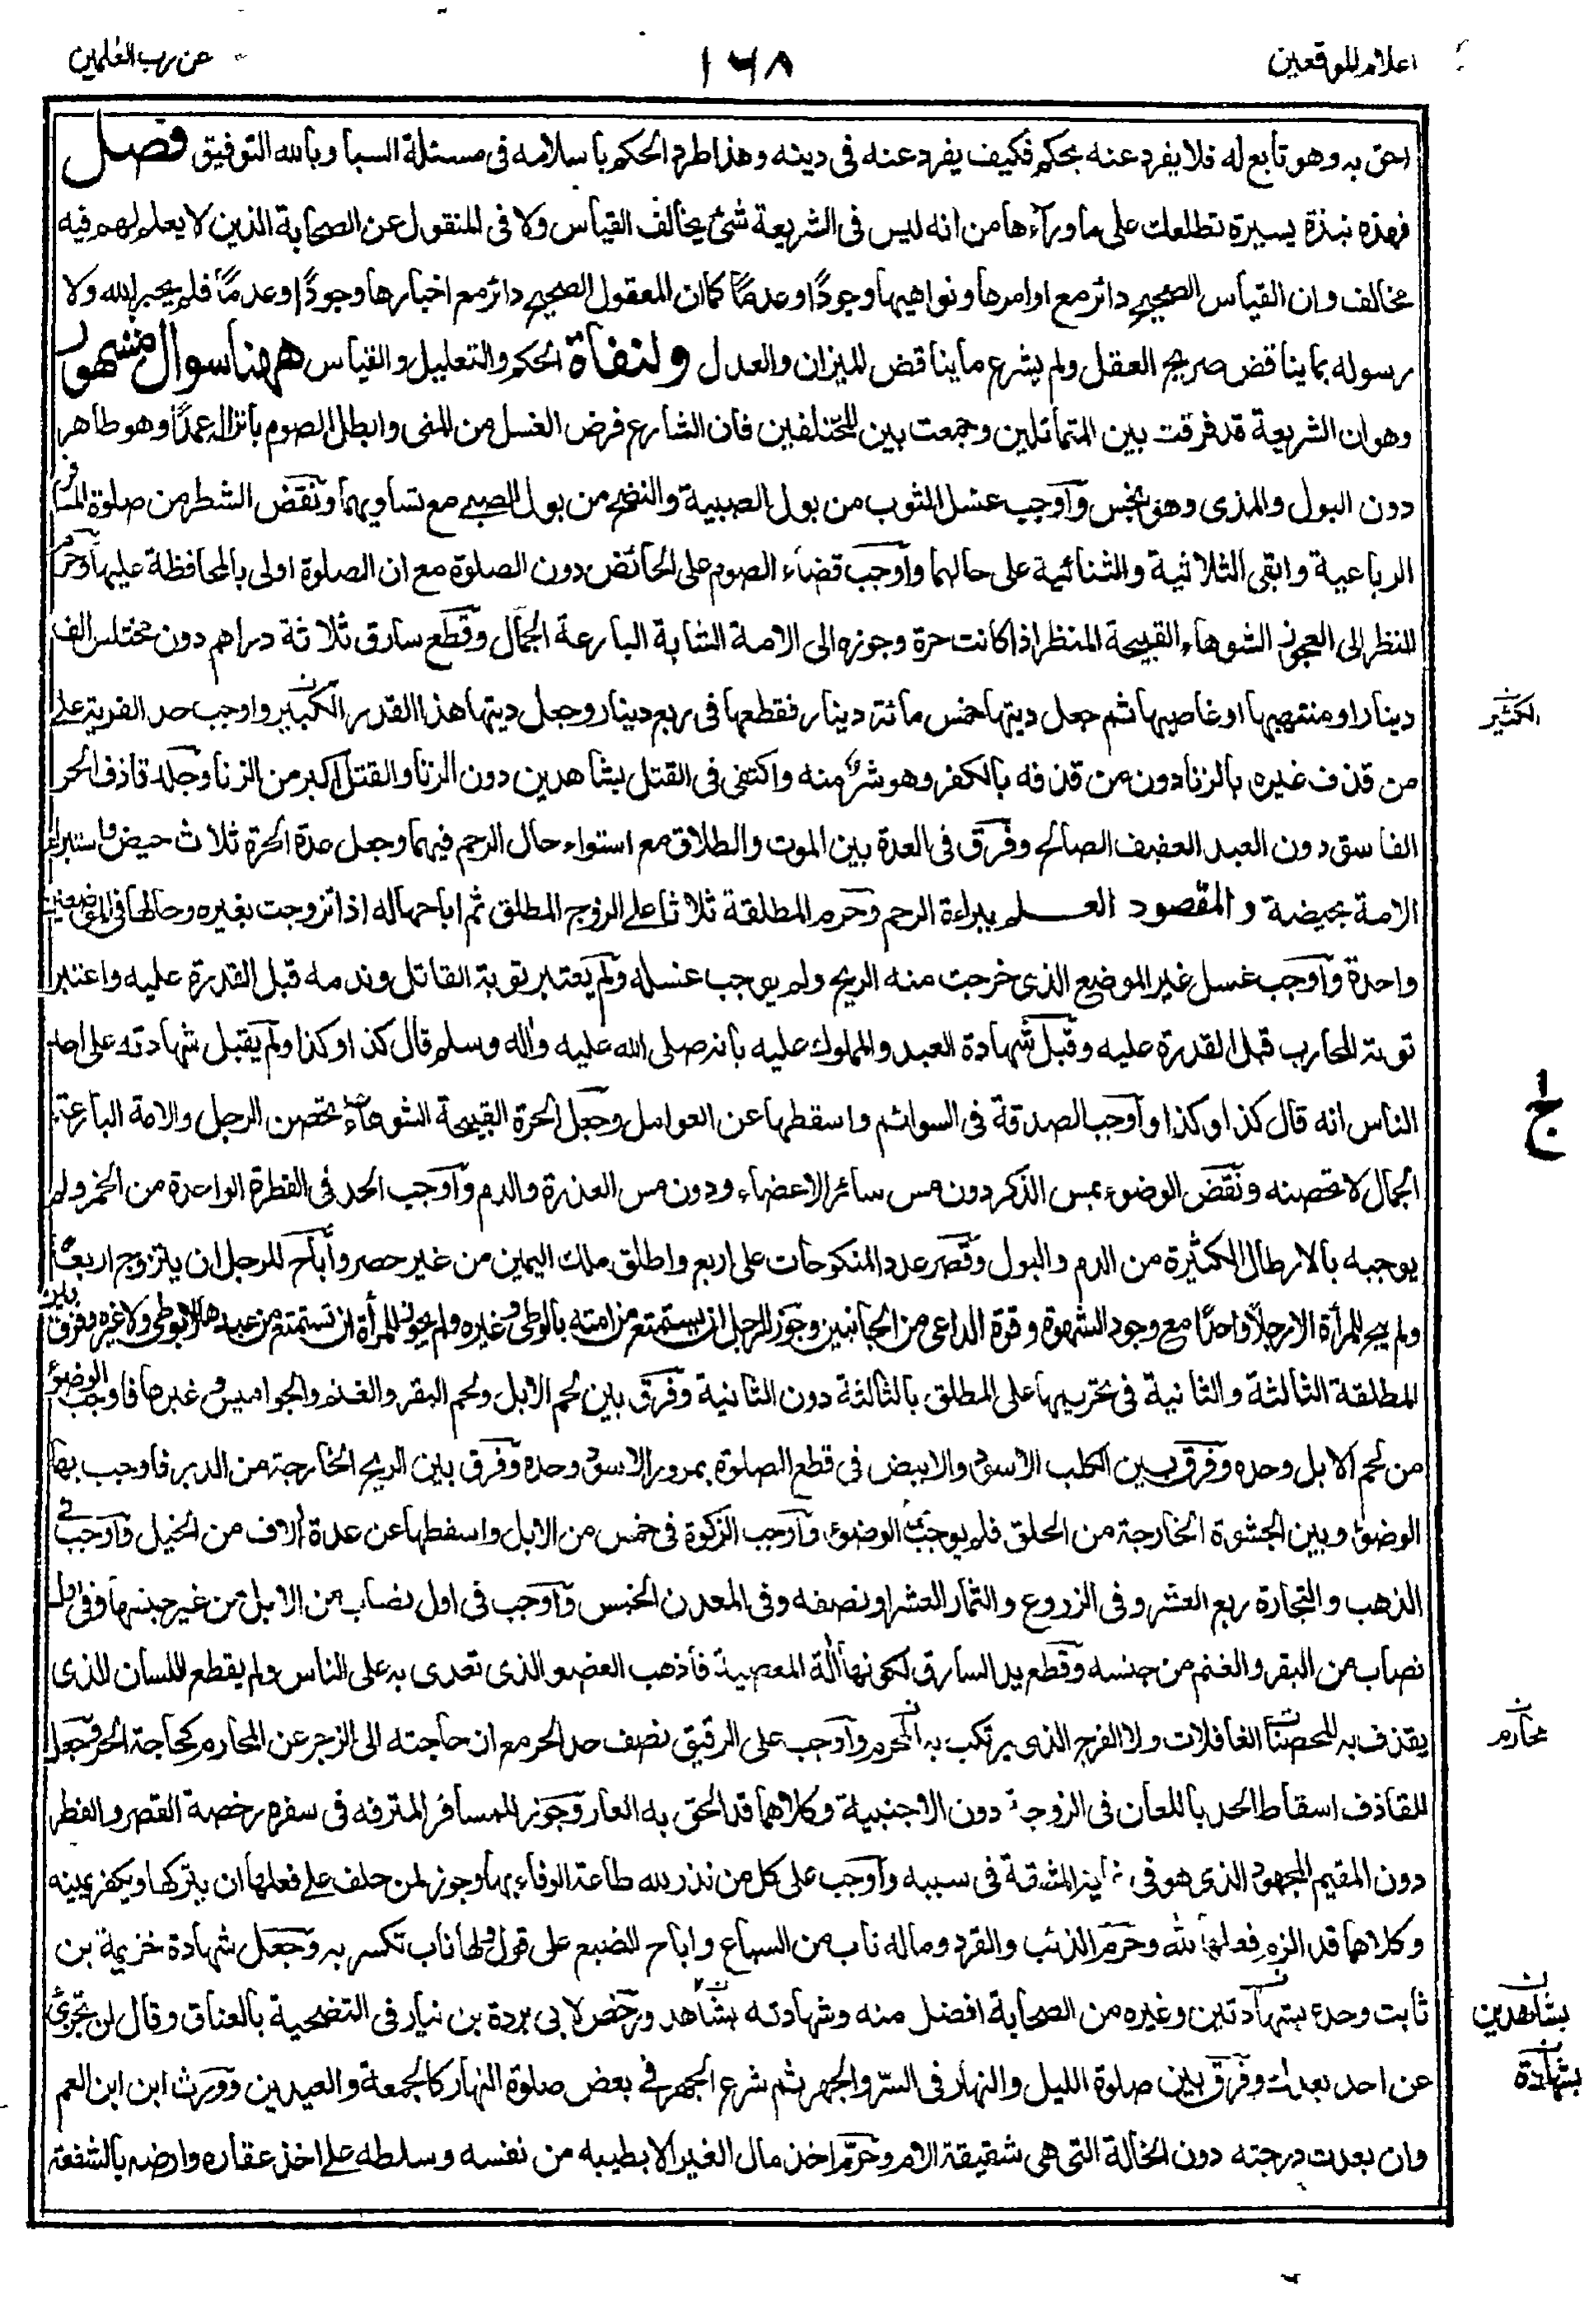 اعلام الموقعين
١٦٨
عن رب العلمين
احق به وهو تابع له فلا يفرد عنه بحكم فكيف يفرد عنه فى دينه وهذا طرد الحكم باسلامه فى مسئلة السبا وبالله التوفيق فصل
فهذه نبذة يسيرة تطلعك على ما ورآءها من انه ليس فى الشريعة شئ يخالف القياس ولا فى المنقول عن الصحابة الذين لا يعلم لهم فيه
مخالف وان القياس الصحيح دائر مع اوامرها ونواهيها وجودًا وعدمًا كما ان المعقول الصحيح دائر مع اخبارها وجودًا وعدمًا فلم يخبر الله ولا
رسوله بما يناقض صريح العقل ولم يشرع ما يناقض الميزان والعدل ولنفاة الحكم والتعليل والقياس ههنا سوال مشهور
وهو ان الشريعة قد فرقت بين المتماثلين وجمعت بين المختلفين فان الشارع فرض الغسل من المنى وابطل الصوم بانزاله عمدًا وهو طاهر
دون البول والمذى وهو نجس وآوجب غسل الثوب من بول الصبية والنضح من بول الصبى مع تساويهما ونقض الشطر من صلوة المسافر
الرباعية وابقى الثلاثية والثنائية على حالهما وآوجب قضاء الصوم على الحائض دون الصلوة مع ان الصلوة اولى بالمحافظة عليها وحرم
النظر الى العجوز الشوهاء القبيحة المنظر اذا كانت حرة وجوزه الى الامة الشابة البارعة الجمال وقطع سارق ثلاثة دراهم دون مختلس الف
دينار او منتهبها او غاصبها ثم جعل ديتها خمس مائة دينار فقطعها فى ربع دينار وجعل ديتها هذا القدر الكبير واوجب حد الفرية على
الكثير
من قذف غيره بالزنا دون من قذفه بالكفر وهو شر منه واكتفى فى القتل بشاهدين دون الزنا والقتل اكبر من الزنا وجلد قاذف الحر
الفاسق دون العبد العفيف الصالح وفرق فى العدة بين الموت والطلاق مع استواء حال الرحم فيهما وجعل عدة الحرة ثلاث حيض واستبراء
الامة بحيضة والمقصود العلم ببراءة الرحم وحرم المطلقة ثلاثا على الزوج المطلق ثم اباحها له اذا تزوجت بغيره وحالها فى الموضعين
واحدة وآوجب غسل غير الموضع الذى خرجت منه الريح ولم يوجب غسله ولم يعتبر توبة القاتل وندمه قبل القدرة عليه واعتبر
توبة المحارب قبل القدرة عليه وقبل شهادة العبد والمملوك عليه بانه صلى الله عليه واله وسلم قال كذا وكذا ولم يقبل شهادته على احد
الناس انه قال كذا وكذا وآوجب الصدقة فى السوائم واسقطها عن العوامل وجعل الحرة القبيحة الشوهاء تحصن الرجل والامة البارعة
ج
الجمال لا تحصنه ونقض الوضوء بمس الذكر دون مس سائر الاعضاء ودون مس العذرة والدم وآوجب الحد فى القطرة الواحدة من الخمر ولم
يوجبه بالارطال الكثيرة من الدم والبول وقصر عدد المنكوحات على اربع واطلق ملك اليمين من غير حصر وآباح للرجل ان يتزوج اربعة
ولم يبح للمرأة الا رجلًا واحدًا مع وجود الشهوة وقوة الداعى من الجانبين وجوز للرجل ان يستمتع من امته بالوطى وغيره ولم يجوز للمرأة ان تستمتع من عبدها لا بوطى ولا غيره وفرق بين
المطلقة الثالثة والثانية فى تحريمها على المطلق بالثالثة دون الثانية وفرق بين لحم الابل ولحم البقر والغنم والجواميس وغيرها فاوجب الوضوء
من لحم الابل وحده وفرق بين الكلب الاسود والابيض فى قطع الصلوة بمرور الاسود وحده وفرق بين الريح الخارجة من الدبر فاوجب بها
الوضوء وبين الجشوة الخارجة من الحلق فلم يوجب بها الوضوء وآوجب الزكوة فى خمس من الابل واسقطها عن عدة الاف من الخيل وآوجب فى
الذهب والتجارة ربع العشر وفى الزروع والثمار العشر او نصفه وفى المعدن الخمس وآوجب فى اول نصاب من الابل من غير جنسها وفى اول
نصاب من البقر والغنم من جنسه وقطع يد السارق لكونها آلة المعصية فأذهب العضو الذى تعدى به على الناس ولم يقطع اللسان الذى
يقذف به المحصنات الغافلات ولا الفرج الذى يرتكب به المحرم وآوجب على الرقيق نصف حد الحر مع ان حاجته الى الزجر عن المحارم كحاجة الحر وجعل
محارم
للقاذف اسقاط الحد باللعان فى الزوجة دون الاجنبية وكلاهما قد الحق به العار وجوز للمسافر المترفه فى سفره رخصة القصر والفطر
دون المقيم المجهود الذى هو فى غاية المشقة فى سببه وآوجب على كل من نذر لله طاعة الوفاء بها وجوز لمن حلف على فعلها ان يتركها ويكفر يمينه
وكلاهما قد الزم فعلها لله وحرم الذئب والقرد وماله ناب من السباع واباح الضبع على قول ولها ناب تكسر به وجعل شهادة خزيمة بن
ثابت وحده بشهادتين وغيره من الصحابة افضل منه وشهادته بشاهد ورخص لابى بردة بن نيار فى التضحية بالعناق وقال لن تجزئ
بشاهدين
بشهادة
عن احد بعدك وفرق بين صلوة الليل والنهار فى السر والجهر ثم شرع الجهر فى بعض صلوة النهار كالجمعة والعيدين وورث ابن ابن العم
وان بعدت درجته دون الخالة التى هى شقيقة الام وحرم اخذ مال الغير الا بطيبه من نفسه وسلطه على اخذ عقاره وارضه بالشفعة